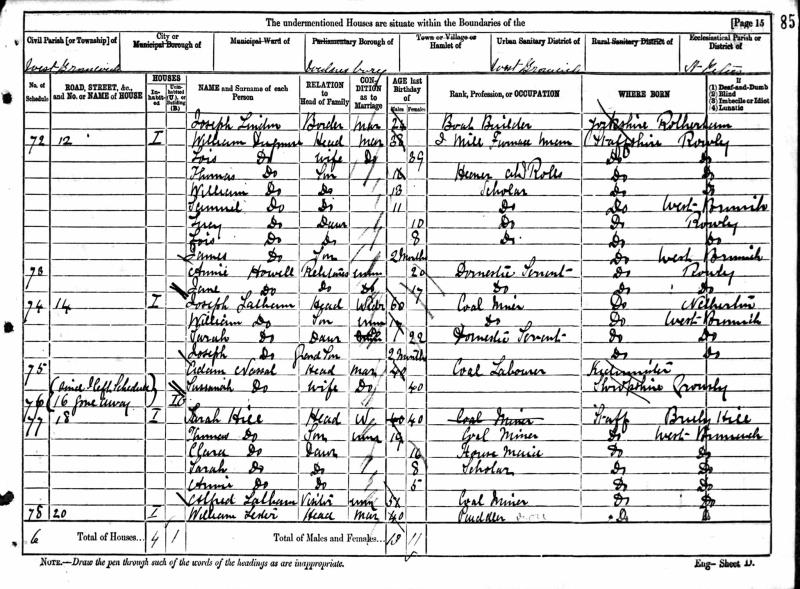 The undermentioned Houses are situate within the Boundaries of the
[Page 15
85
Civil Parish [or Township] of
City or Municipal Borough of
Municipal Ward of
Parliamentary Borough of
Town or Village or Hamlet of
Urban Sanitary District of
Rural Sanitary District of
Ecclesiastical Parish or District of
West Bromwich
Wednesbury
West Bromwich
No. of Schedule
ROAD, STREET, &c., and No. or NAME of HOUSE
HOUSES
Inhabited
Uninhabited (U.), or Building (B.)
NAME and Surname of each Person
RELATION to Head of Family
CONDITION as to Marriage
AGE last Birthday of
Males
Females
Rank, Profession, or OCCUPATION
WHERE BORN
If
(1) Deaf-and-Dumb
(2) Blind
(3) Imbecile or Idiot
(4) Lunatic
Joseph Border Mar Boat Builder Yorkshire Rotherham
72 12 I William Head Mar 38 Mill Furnace Man Staffshire Rowley
Lois Do Wife Do 39 Do Do
Thomas Do Son Rolls Do Do
William Do Do 13 Scholar Do Do
Samuel Do Do 11 Do Do West Bromwich
Do Daur 10 Do Do Rowley
Lois Do Do 8 Do Do Do
James Do Son 2 Months Do West Bromwich
73 Annie Howell unm 20 Domestic Servent Do Rowley
Jane Do Do Do 17 Do Do Do
74 14 I Joseph Latham Head Widr 60 Coal Miner Do Netherton
William Do Son unm Do Do West Bromwich
Sarah Do Daur 22 Domestic Servent Do Do
Joseph Do Grand Son 2 Months Do Do
75 Adam Head Mar 40 Coal Labourer
Susannah Do Wife Do 40 Shropshire
76 16 gone away
77 18 I Sarah Hill Head W 40 Coal Miner Staff Hill
Thomas Do Son unm 19 Coal Miner Do West Bromwich
Clara Do Daur 16 House Maid Do Do
Sarah Do Do 8 Scholar Do Do
Annie Do Do 5 Do Do
Alfred Latham Visitor unm Coal Miner Do Do
78 20 I William Head Mar 40 Puddler Do
6 Total of Houses... 4 1
Total of Males and Females... 13 11
NOTE.—Draw the pen through such of the words of the headings as are inappropriate.
Eng— Sheet D.